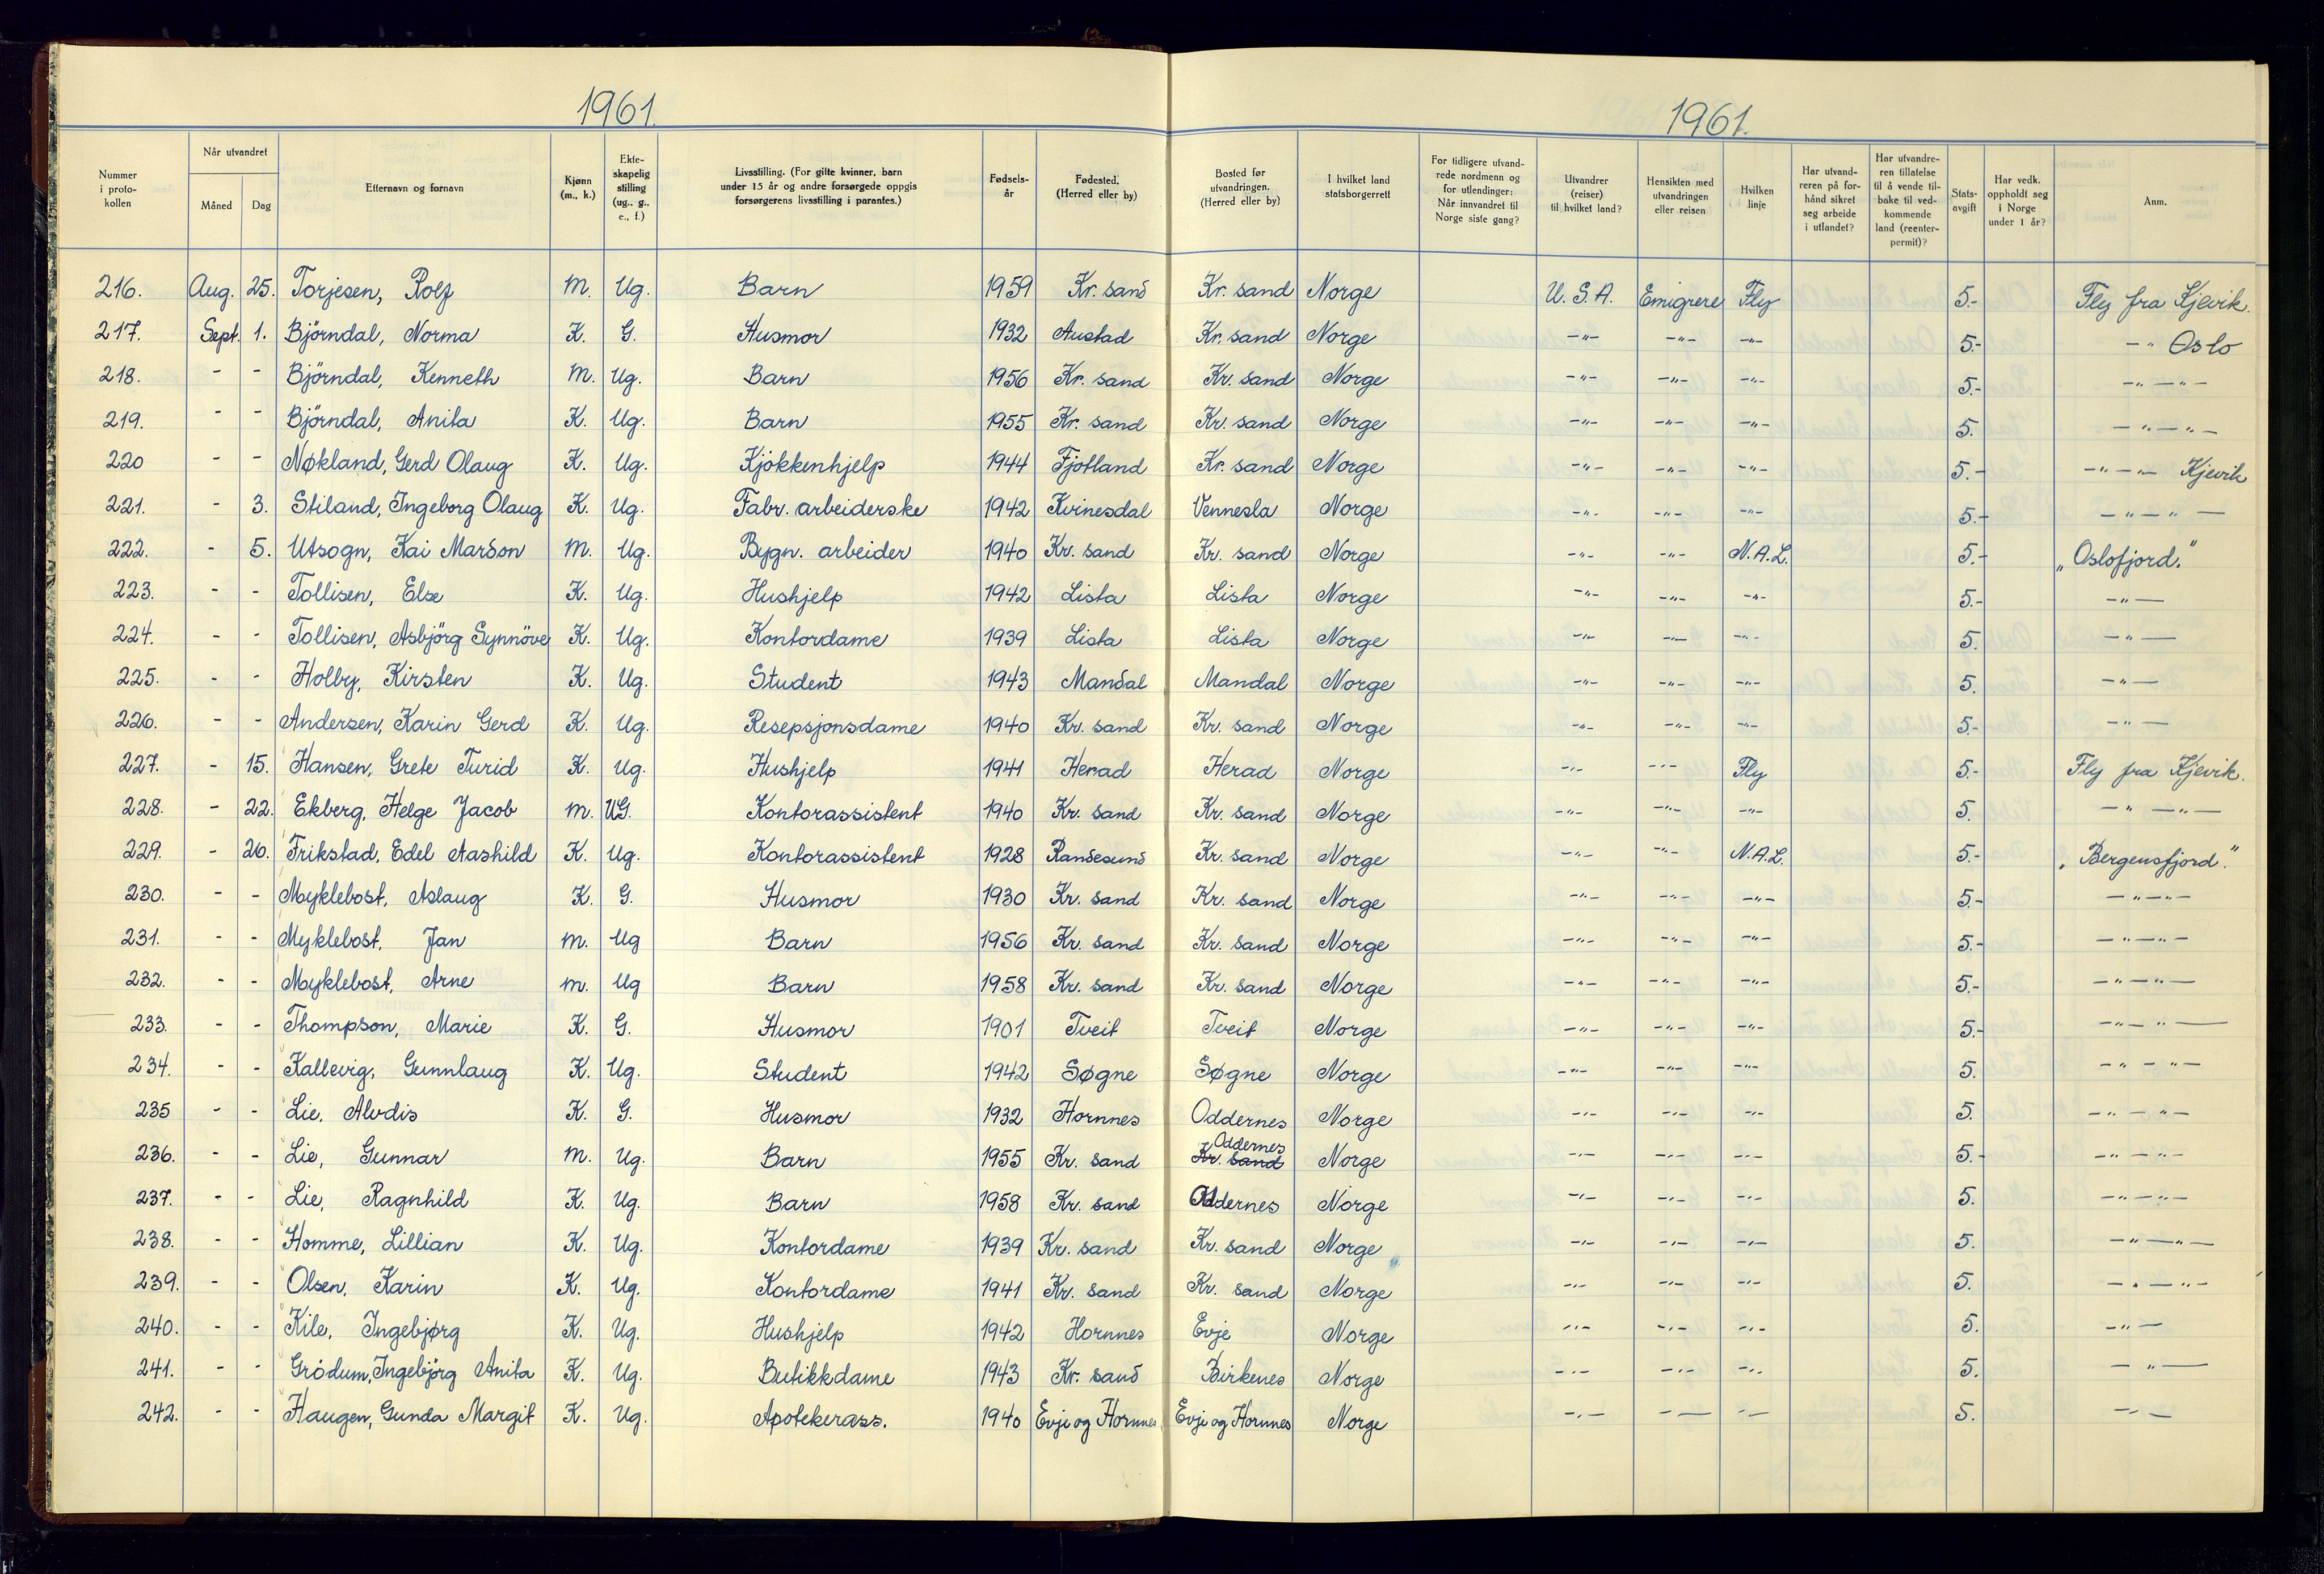 1961. 1961.
Nummer i proto-kollen | Når utvandret Måned Dag | Etternavn og fornavn | Kjønn (m., k.) | Ekte-skapelig stilling (ug., g., e., f.) | Livsstilling. (For gifte kvinner, barn under 15 år og andre forsørgede oppgis forsørgerens livsstilling i parantes.) | Fødsels-år | Fødested. (Herred eller by) | Bosted før utvandringen. (Herred eller by) | I hvilket land statsborgerrett | For tidligere utvand-rede nordmenn og for utlendinger: Når innvandret til Norge siste gang? | Utvandrer (reiser) til hvilket land? | Hensikten med utvandringen eller reisen | Hvilken linje | Har utvand-reren på for-hånd sikret seg arbeide i utlandet? | Har utvandre-ren tillatelse til å vende til-bake til ved-kommende land (reenter-permit)? | Stats-avgift | Har vedk. oppholdt seg i Norge under 1 år? | Anm.
216. Aug. 25. Torjesen, Rolf M. Ug. Barn 1959 Kr. sand Kr. sand Norge U.S.A. Emigrere Fly 5.- Fly fra Kjevik.
217. Sept. 1. Björndal, Norma K. G. Husmor 1932 Austad Kr. sand Norge -"- -"- -"- 5.- -" Oslo
218. - - Björndal, Kenneth M. Ug. Barn 1956 Kr. sand Kr. sand Norge -"- -"- -"- 5.- -"-"-
219. - - Björndal, Anita K. Ug. Barn 1955 Kr. sand Kr. sand Norge -"- -"- -"- 5. -"-"-
220 - - Nøkland, Gerd Olaug K. Ug. Kjökkenhjelp 1944 Fjotland Kr. sand Norge -"- -"- -"- 5.- -"-"- Kjevik
221. - 3. Stiland, Ingeborg Olaug K. Ug. Fabr. arbeiderske 1942 Kvinesdal Vennesla Norge -"- -"- -"- 5.- -"-"-
222. - 5. Utsogn, Kai Mardon M. Ug. Bygn. arbeider 1940 Kr. sand Kr. sand Norge -"- -"- N.A.L. 5.- "Oslofjord."
223. - - Tollisen, Else K. Ug. Hushjelp 1942 Lista Lista Norge -"- -"- -"- 5.- -"-
224. - - Tollisen, Asbjörg Synnöve K. Ug. Kontordame 1939 Lista Lista Norge -"- -"- -"- 5. -"-
225. - - Holby, Kirsten K. Ug. Student 1943 Mandal Mandal Norge -"- -"- -"- 5. -"-
226. - - Andersen, Karin Gerd K. Ug. Resepsjonsdame 1940 Kr. sand Kr. sand Norge -"- -"- -"- 5.- -"-
227. - 15. Hansen, Grete Turid K. Ug. Hushjelp 1941 Herad Herad Norge -"- -"- Fly 5.- Fly fra Kjevik.
228. - 22. Ekberg, Helge Jacob M. UG. Kontorassistent 1940 Kr. sand Kr. sand Norge -"- -"- -"- 5. -"-"-
229. - 26. Frikstad, Edel Aashild K. Ug. Kontorassistent 1928 Randesund Kr. sand Norge -"- -"- N.A.L. 5.- "Bergensfjord."
230. - - Myklebost, Aslaug K. G. Husmor 1930 Kr. sand Kr. sand Norge -"- -"- -"- 5.- -"-"-
231. - - Myklebost, Jan M. Ug Barn 1956 Kr. sand Kr. sand Norge -"- -"- -"- 5.- -"-"-
232. - - Myklebost, Arne M. Ug Barn 1958 Kr. sand Kr. sand Norge -"- -"- -"- 5.- -"-"-
233. - - Thompson, Marie K. G. Husmor 1901 Tveit Tveit Norge -"- -"- -"- 5.- -"-"-
234. - - Kallevig, Gunnlaug K. Ug. Student 1942 Søgne Søgne Norge -"- -"- -"- 5. -"-"-
235 - - Lie, Alvdis K. G. Husmor 1932 Hornnes Oddernes Norge -"- -"- -"- 5. -"-"-
236. - - Lie, Gunnar M. Ug. Barn 1955 Kr. sand Kr. sand Oddernes Norge -"- -"- -"- 5.- -"-"-
237. - - Lie, Ragnhild K. Ug. Barn 1958 Kr. sand Oddernes Norge -"- -"- -"- 5. -"-"-
238. - - Homme, Lillian K. Ug. Kontordame 1939 Kr. sand Kr. sand Norge -"- -"- -"- 5. -"-"-
239. - - Olsen, Karin K. Ug. Kontordame 1941 Kr. sand Kr. sand Norge -"- -"- -"- 5. -"-"-
240. - - Kile, Ingebjørg K. Ug. Hushjelp 1942 Hornnes Evje Norge -"- -"- -"- 5. -"-
241. - - Grödum, Ingebjörg Anita K. Ug. Butikkdame 1943 Kr. sand Birkenes Norge -"- -"- -"- 5. -"-
242. - - Haugen, Gunda Margit K. Ug. Apotekerass. 1940 Evje og Hornnes Evje og Hornnes Norge -"- -"- -"- 5. -"-